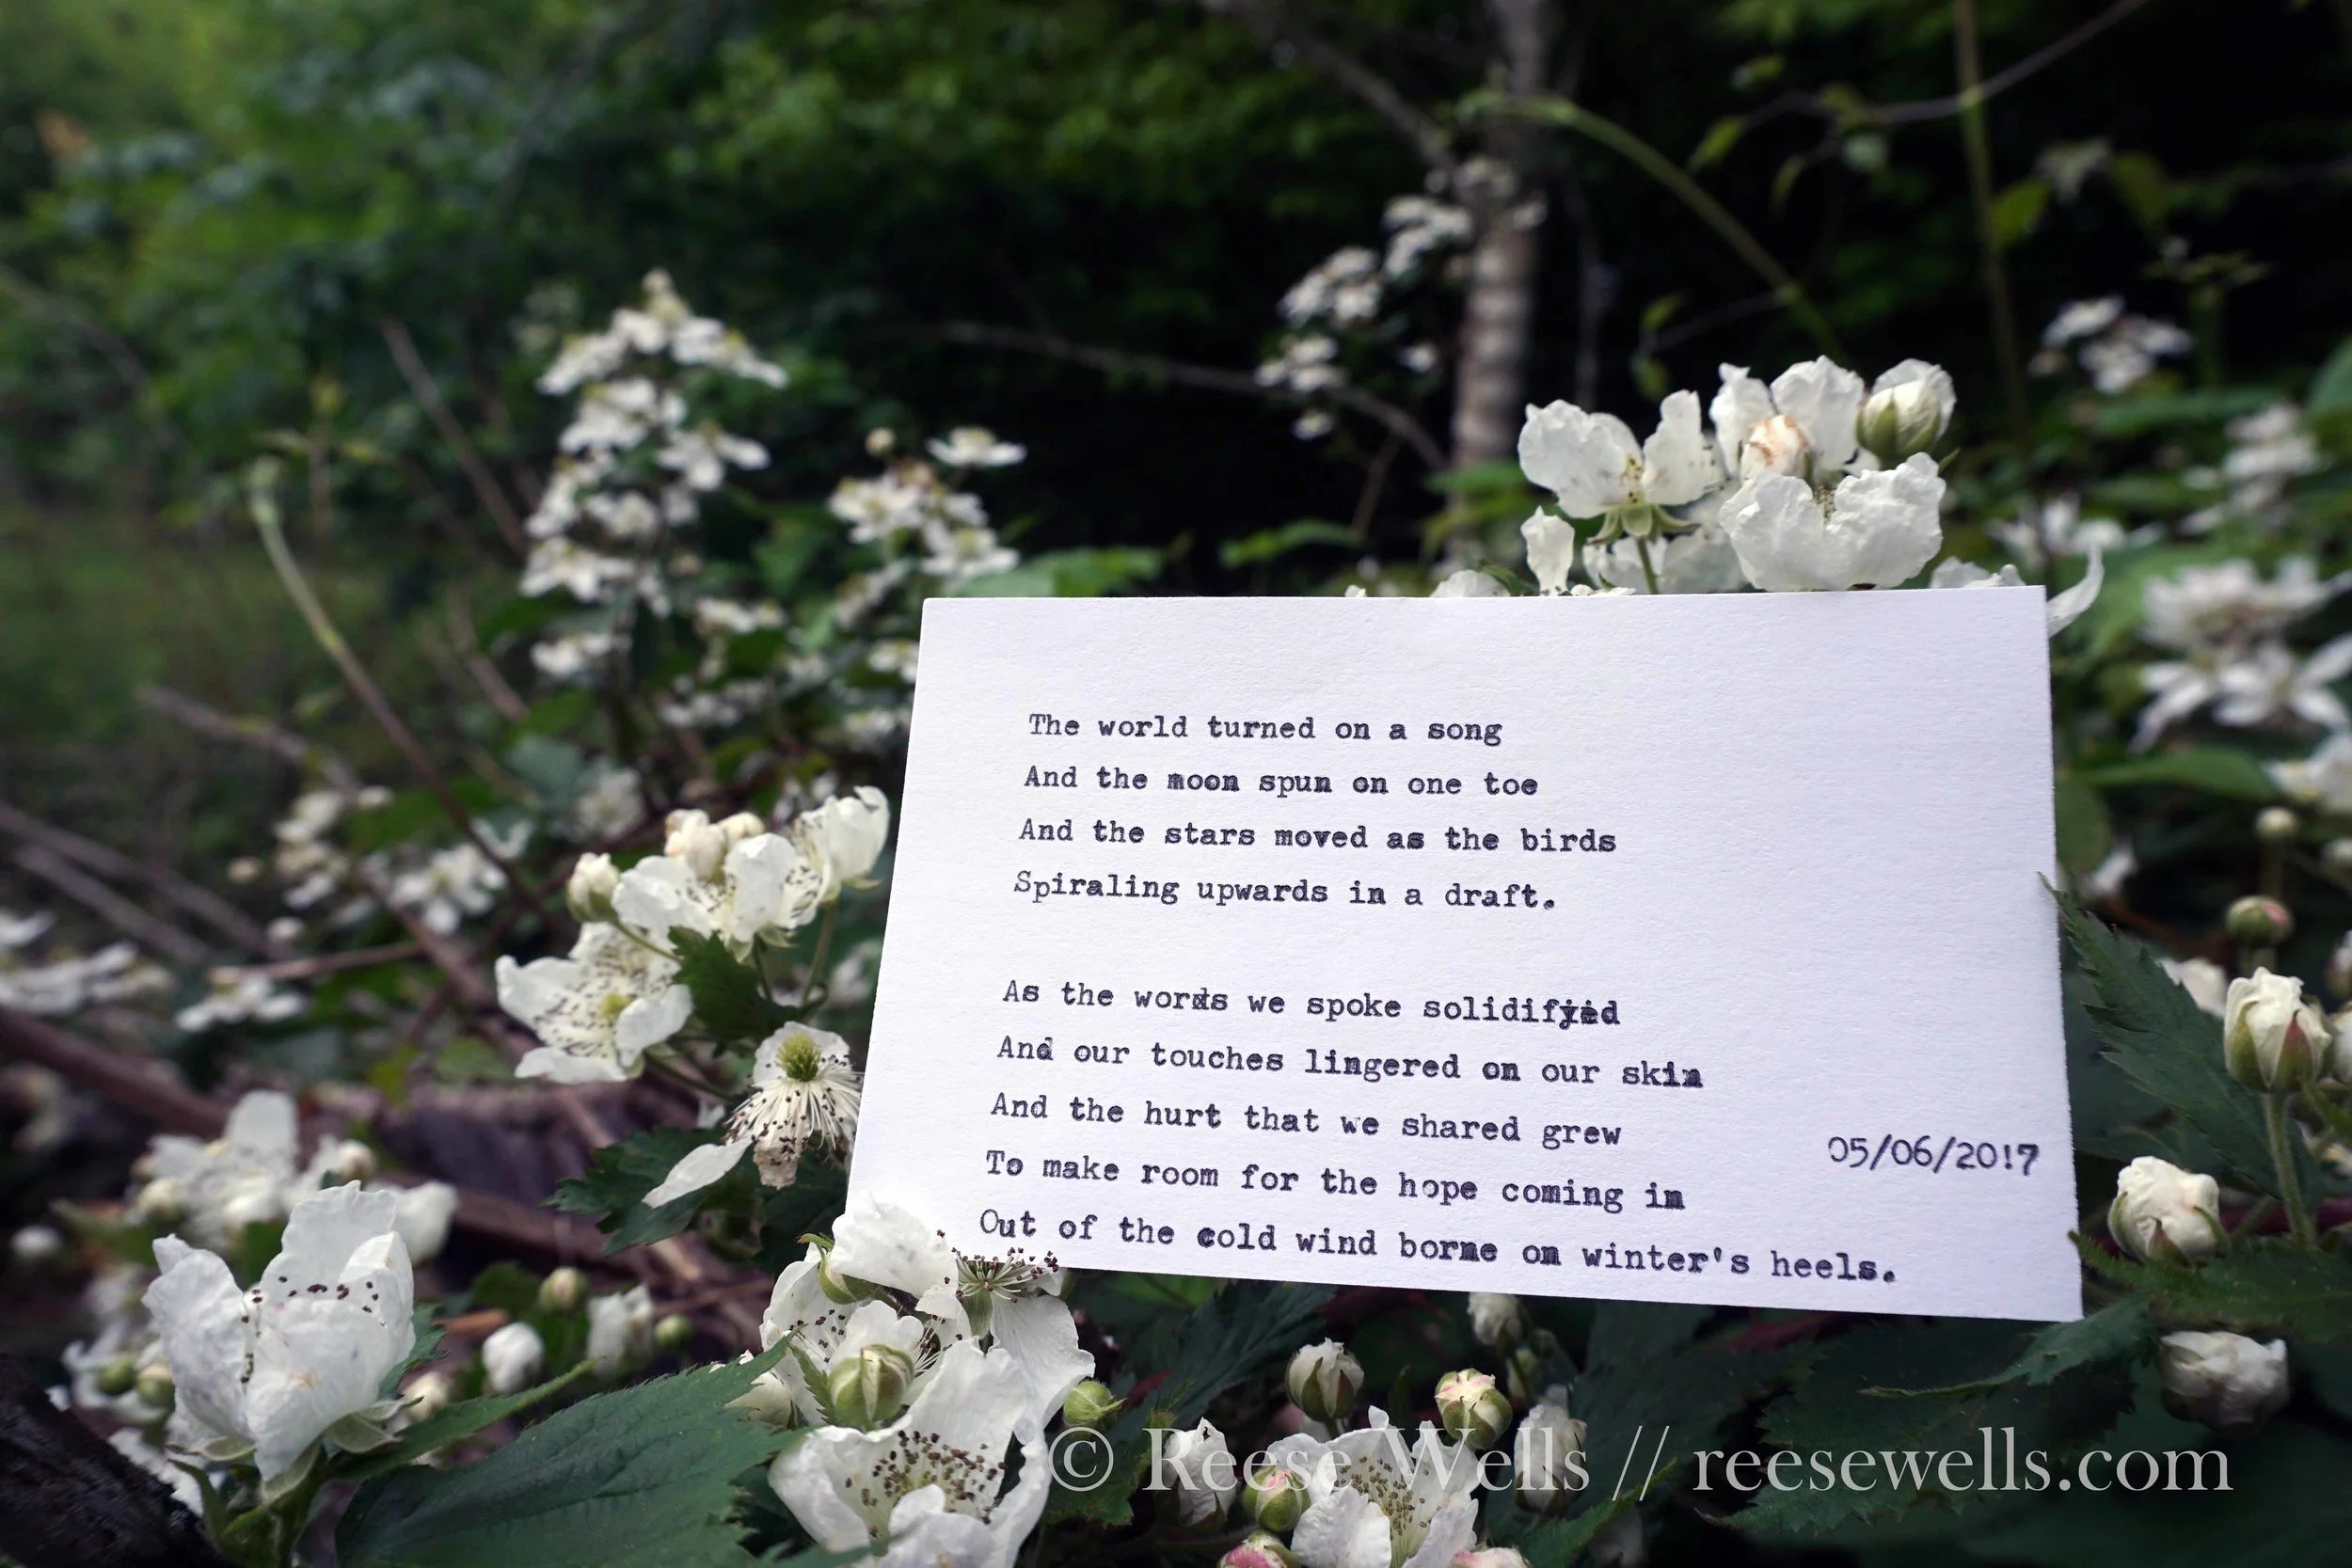 The world turned on a song
And the moon spun on one toe
And the stars moved as the birds
Spiraling upwards in a draft.
As the words we spoke solidified
And our touches lingered on our skin
And the hurt that we shared grew
To make room for the hope coming in
Out of the cold wind borne on winter's heels.
05/06/2017
© Reese Wells // reesewells.com